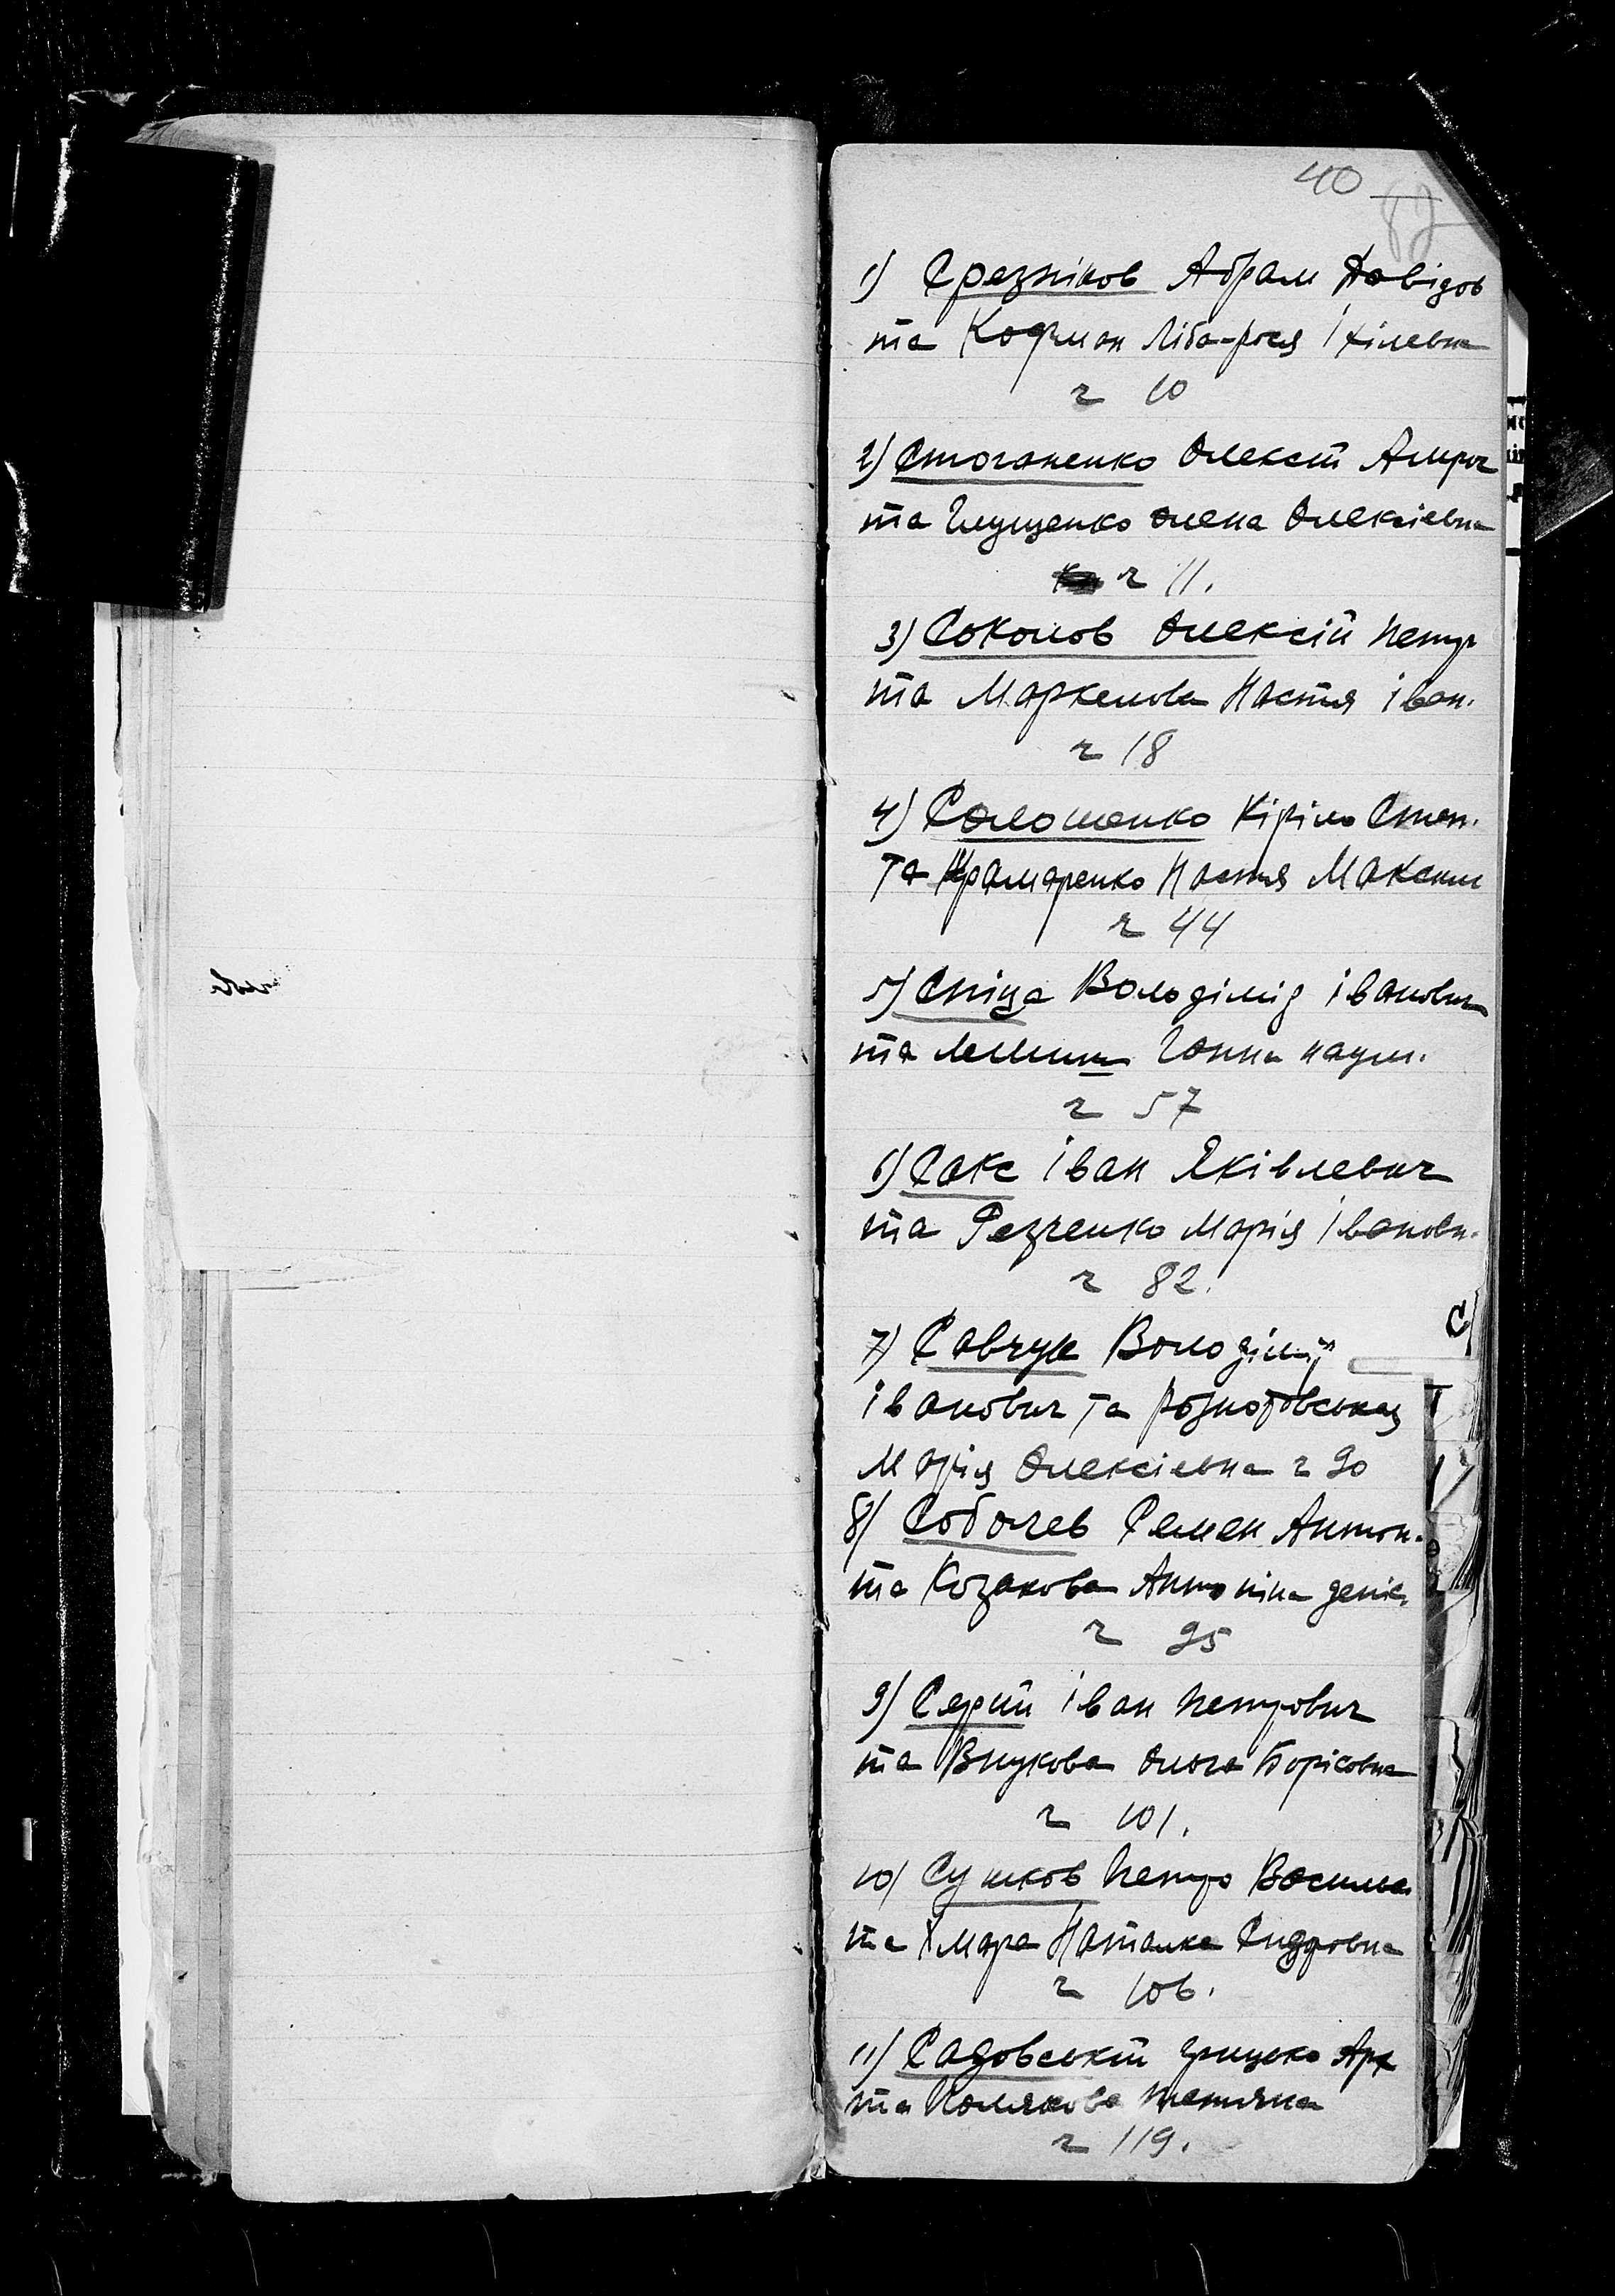 40
82
1) Срезніков Абрам Давідов
та Кофман Ліба-рося Іхілевна
ч 10
2) Стогоненко Олексій Амрос
та Глущенко Олена Олексіевна
ч 11.
3) Соколов Олексій Петр
та Маркелова Настя Іван.
ч 18
4) Солошенко Кіріло Степ.
та Крамаренко Настя Максим
ч 44
5) Спіца Володімір Іванович
та Ганна наум.
ч 57
6) Сакс Іван Яківлевич
та Резченко Марія Івановн.
ч 82.
7) Савчук Володімір
Івановіч та Рознотовськая
Марія Олексіевна ч 90
8) Соболев Семен Антон.
та Козакова Антоніна деніс.
ч 95
9) Серий Іван Петрович
та Внукова Ольга Борісовна
ч 101.
10) Сушков Петро Василь
та Хмара Наталка Сидровна
ч 106.
11) Садовський Грицько Арх
та Полякова Тетяна
ч 119.
С